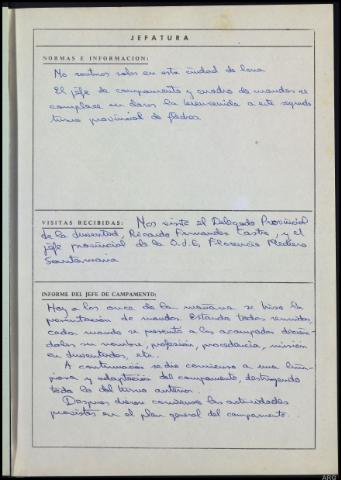 JEFATURA
NORMAS E INFORMACION:
No estamos solos en esta ciudad de lona
El jefe de campamento y cuadro de mandos se
complace en daros la bienvenida a este segundo
turno provincial de flechas
VISITAS RECIBIDAS: Nos visita el Delegado Provincial
de la Juventud, Ricardo Fernandez Castro, y el
jefe provincial de la O.J.E, Florencio Medero
Santamaria
INFORME DEL JEFE DE CAMPAMENTO:
Hoy a las once de la mañana se hizo la
presentación de mandos. Estando todos reunidos,
cada mando se presentó a los acampados dicién-
doles su nombre, profesión, procedencia, misión
en Juventudes, etc.
A continuación se dio comienzo a una lim-
pieza y adaptación del campamento, destruyendo
todo lo del turno anterior.
Despues dieron comienzo las actividades
previstas en el plan general del campamento.